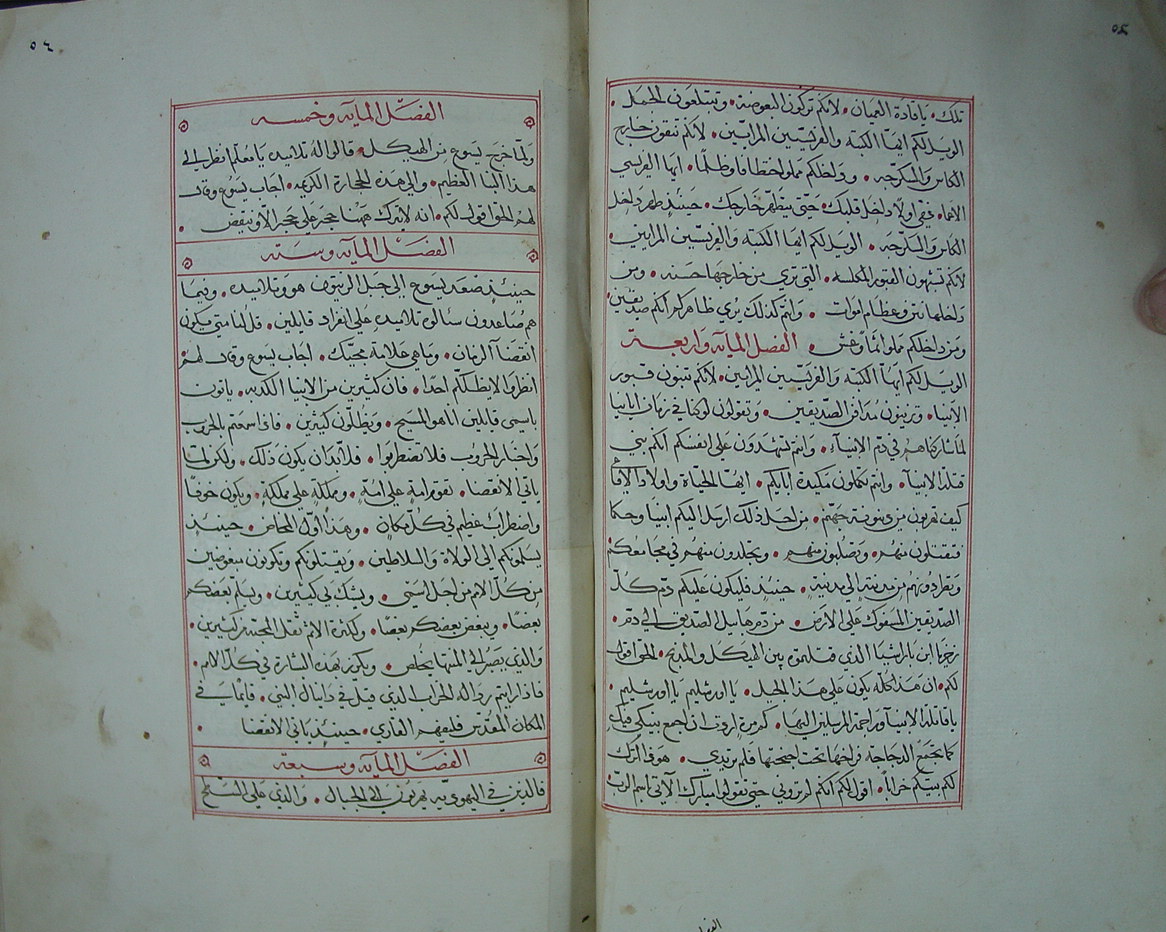 ٥٥
تلك. يا قادة العميان. لانكم تركون البعوضة. وتبتلعون الجمل.
الويل لكم ايها الكتبة والفريسيين المرايين. لانكم تنقون خارج
الكاس والسكرجه. وداخلكم مملو اختطافا وظلما. ايها الفريسي
الاعما. نقي اولا داخل قلبك. حتى يتطهر خارجك. حينيذ طهر داخل
الكاس والسكرجه. الويل لكم ايها الكتبة والفريسيين المرايين.
لانكم تشبهون القبور المكلسه. التي تري من خارجها حسنه. ومن
داخلها نتن وعظام اموات. وانتم كذلك يري ظاهركم انكم صديقين
ومن داخلكم مملوا اثما وغش. الفصل المايه واربعة
الويل لكم ايها الكتبه والفريسيين المرايين. لانكم تبنون قبور
الانبيا. وتزينون مدافن الصديقين. وتقولون لو كنا في زمان ابايينا
لما شاركناهم في دم الانبياء. وانتم تشهدون على انفسكم انكم بني
قتلة الانبيا. وانتم تكملون مكيدة ابايكم. ايها الحياة واولاد الافاع
كيف تهربون من دينونة جهنم. من اجل ذلك ارسل اليكم انبيا وحكما
فتقتلون منهم. وتصلبون منهم. وتجلدون منهم في مجامعكم
وتطردونهم من مدينة الي مدينة. حينيذ فليكون عليكم دم كل
الصديقين المسفوك على الارض. من دم هابيل الصديق الي دم.
زخريا ابن باراشيا الذي قتلتموه بين الهيكل والمذبح. الحق اقول
لكم. ان هذا كله يكون على هذا الجيل. يا اورشليم يا اورشليم.
يا قاتلة الانبيا وراجمة المرسلين اليها. كم مرة اردت ان اجمع بنيكي فيكي
كما تجمع الدجاجه فراخها تحت اجنحتها فلم تريدي. هوذا اترك
لكم بيتكم خرابا. اقول لكم انكم لم تروني حتى تقولوا مبارك الاتي باسم الرب
٥٦
الفصل المايه وخمسه
ولما خرج يسوع من الهيكل. قالوا له تلاميذه يا معلم انظر الي
هذا البنا العظيم. والي هذه الحجارة الكريمه. اجاب يسوع وقال
لهم الحق اقول لكم. انه لا يترك ههنا حجر على حجر الا وينقض.
الفصل المايه وسته
حينيذ صعد يسوع الي جبل الزيتون هو وتلاميذه. وفيما
هم صاعدون سالوه تلاميذه علي انفراد قايلين. قل لنا متى يكون
انقضآ الزمان. وما هي علامة مجيك. اجاب يسوع وقال لهم
انظروا لايضلكم احدا. فان كثيرين من الانبيا الكذبه. ياتون
باسمي قايلين انا هو المسيح. ويظلون كثيرين. فاذا سمعتم بالحروب
واخبار الحروب فلا تضطربوا. فلا بد ان يكون ذلك. ولكن لما
ياتي الانقضا. تقوم امة على امة. ومملكة على مملكة. ويكون خوفا
واضطراب عظيم في كل مكان. وهذا اول المخاض. حينيذ
يسلمونكم الي الولاة والسلاطين. ويقتلونكم وتكونون مبغوضين
من كل الامم من اجل اسمي. ويشك بي كثيرين. ويسلم بعضكم
بعضا. ويبغض بعضكم بعضا. ولكثرة الاثم تقل المحبة من كثيرين.
والذي يصبر الي المنتها يخلص. ويكرز بهذه البشارة في كل الامم.
فاذا رايتم رذالة الخراب الذي قيل في دانيال النبي. قايما في
المكان المقدس فليفهم القاري. حينيذ ياتي الانقضا
الفصل المايه وسبعة
فالذين في اليهوديه يهربون الي الجبال. والذي على السطح